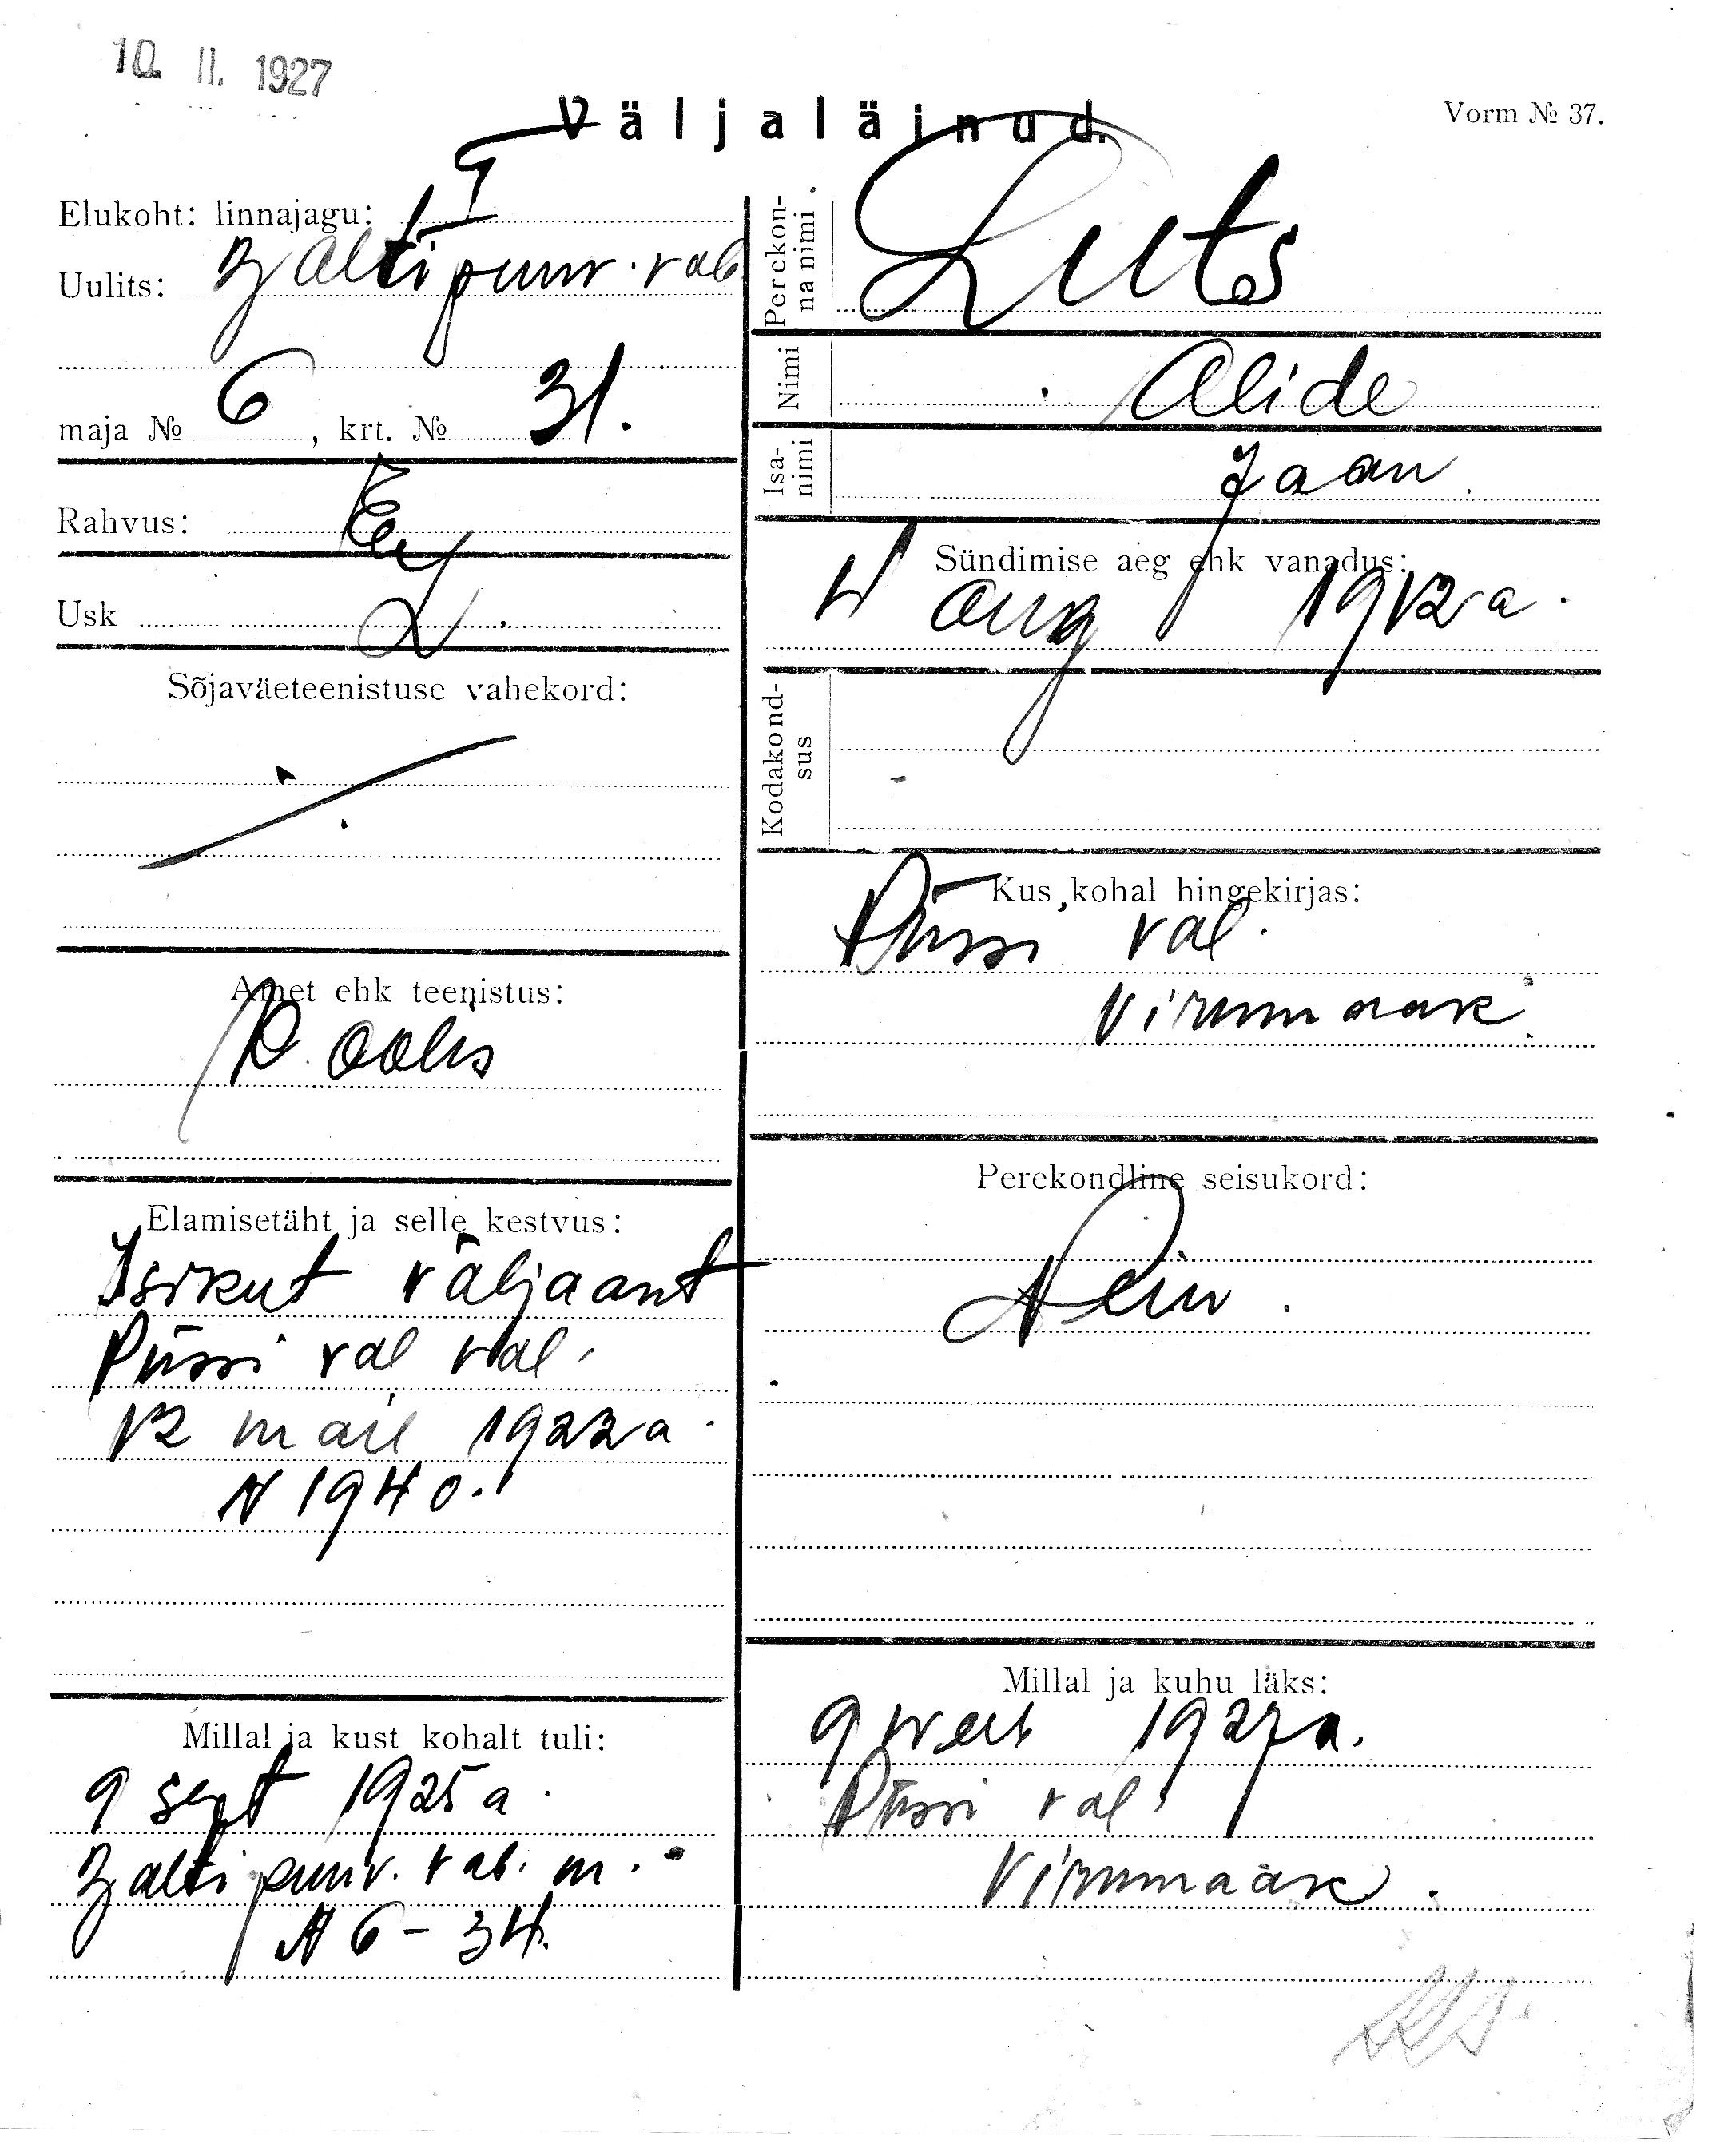 10. II. 1927
Väljaläinud.
Vorm № 37.
Elukoht: linnajagu: I
Uulits: Balti puuv. vab
maja № 6, krt. № 31.
Rahvus: Ee
Usk L.
Sõjaväeteenistuse vahekord:
Amet ehk teenistus:
Elamisetäht ja selle kestvus:
Isikut väljaant
Püssi val val.
12 mail 1922 a.
N 1940.
Millal ja kust kohalt tuli:
9 sept 1925 a.
Balti puuv. vab. m.
N 6 - 34.
Perekonna nimi Luts
Nimi Alide
Isanimi Jaan
Sündimise aeg ehk vanadus:
aug 1912 a.
Kodakondsus
Kus kohal hingekirjas:
Püssi val.
Virumaak.
Perekondline seisukord:
Millal ja kuhu läks:
9 veeb 1927 a.
Püssi val
Virumaak.